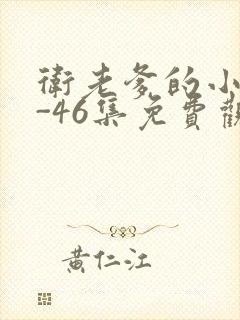 衛老爹的小
-46集免費觀
黃仁江